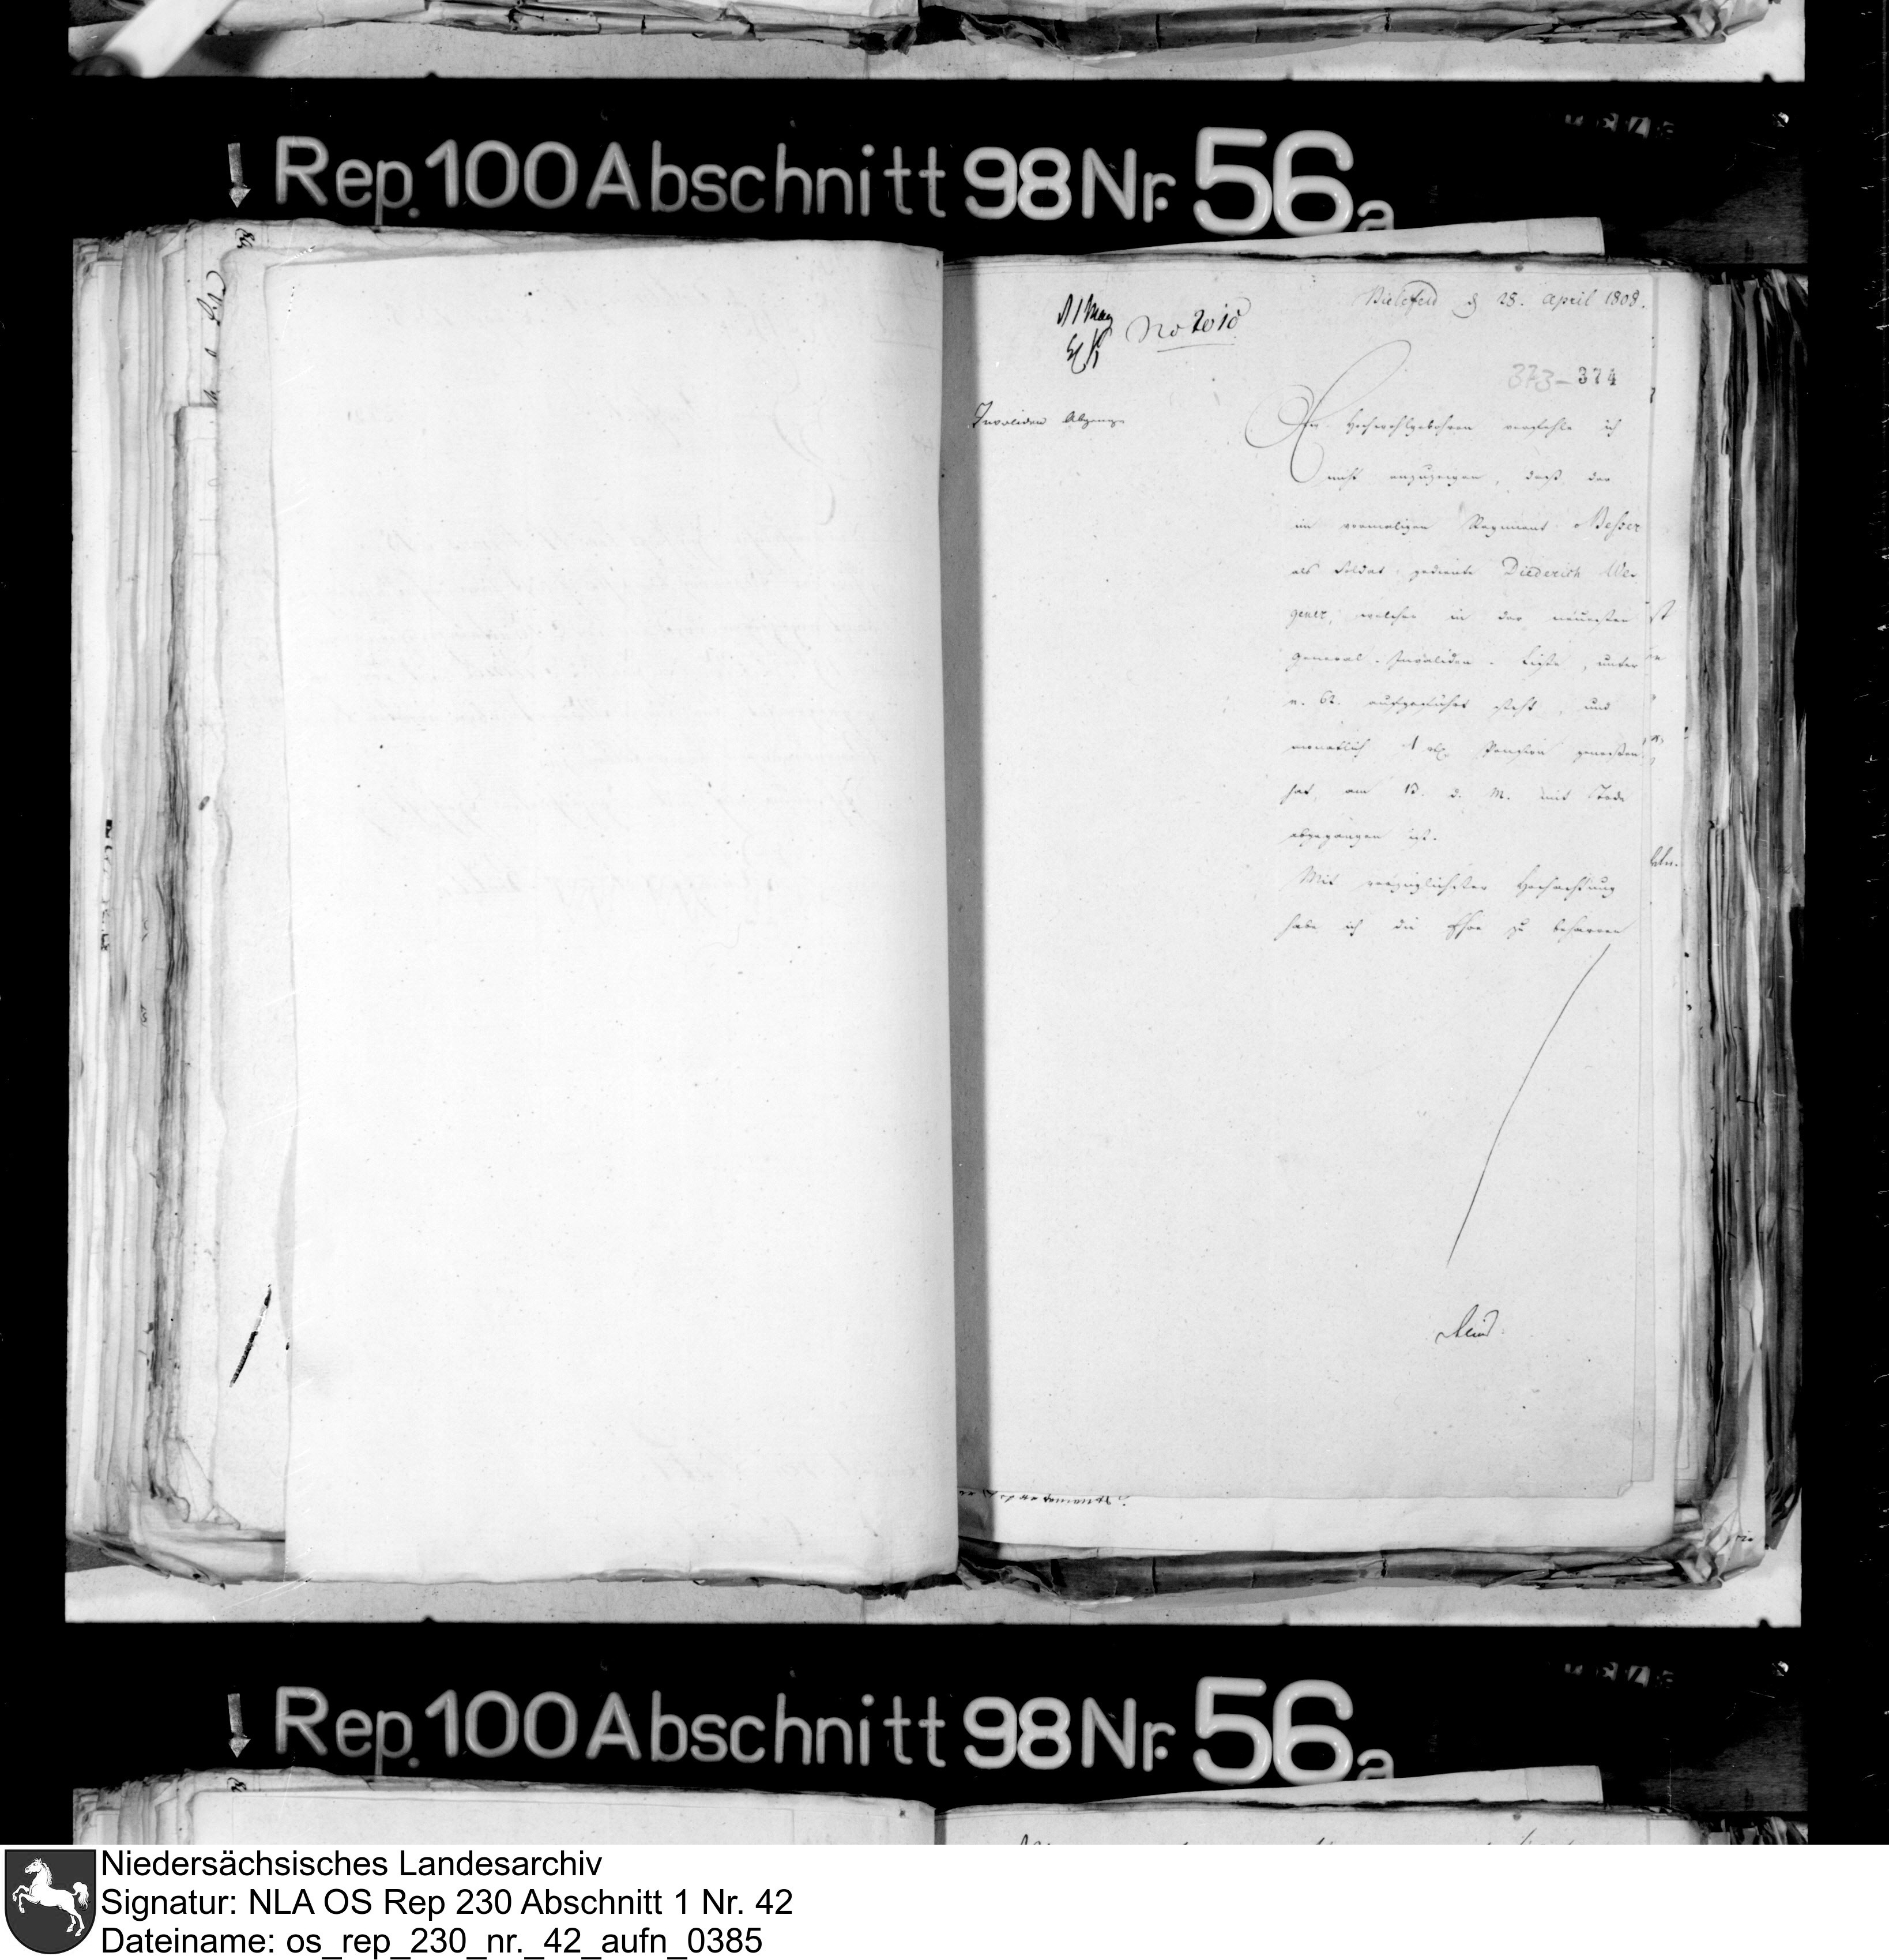 Rep. 100 Abschnitt 98 Nr. 56a
Bielefeld d 28. April 1808.
No 2010
373-374
Invaliden Abgang
Ew Hochwohlgebohren verfehle ich
nicht anzuzeigen, daß der
im vormaligen Regiment Besser
als Soldat gediente Diederich We-
gener, welcher in der neuesten
General-Invaliden-Liste, unter
n. 62. aufgeführt steht, und
monatlich 1 rtlr Pension genossen
hat, am 13. d. M. mit Tode
abgegangen ist.
Mit vorzüglichster Hochachtung
habe ich die Ehre zu beharren
Rep. 100 Abschnitt 98 Nr. 56a
Niedersächsisches Landesarchiv
Signatur: NLA OS Rep 230 Abschnitt 1 Nr. 42
Dateiname: os_rep_230_nr._42_aufn_0385